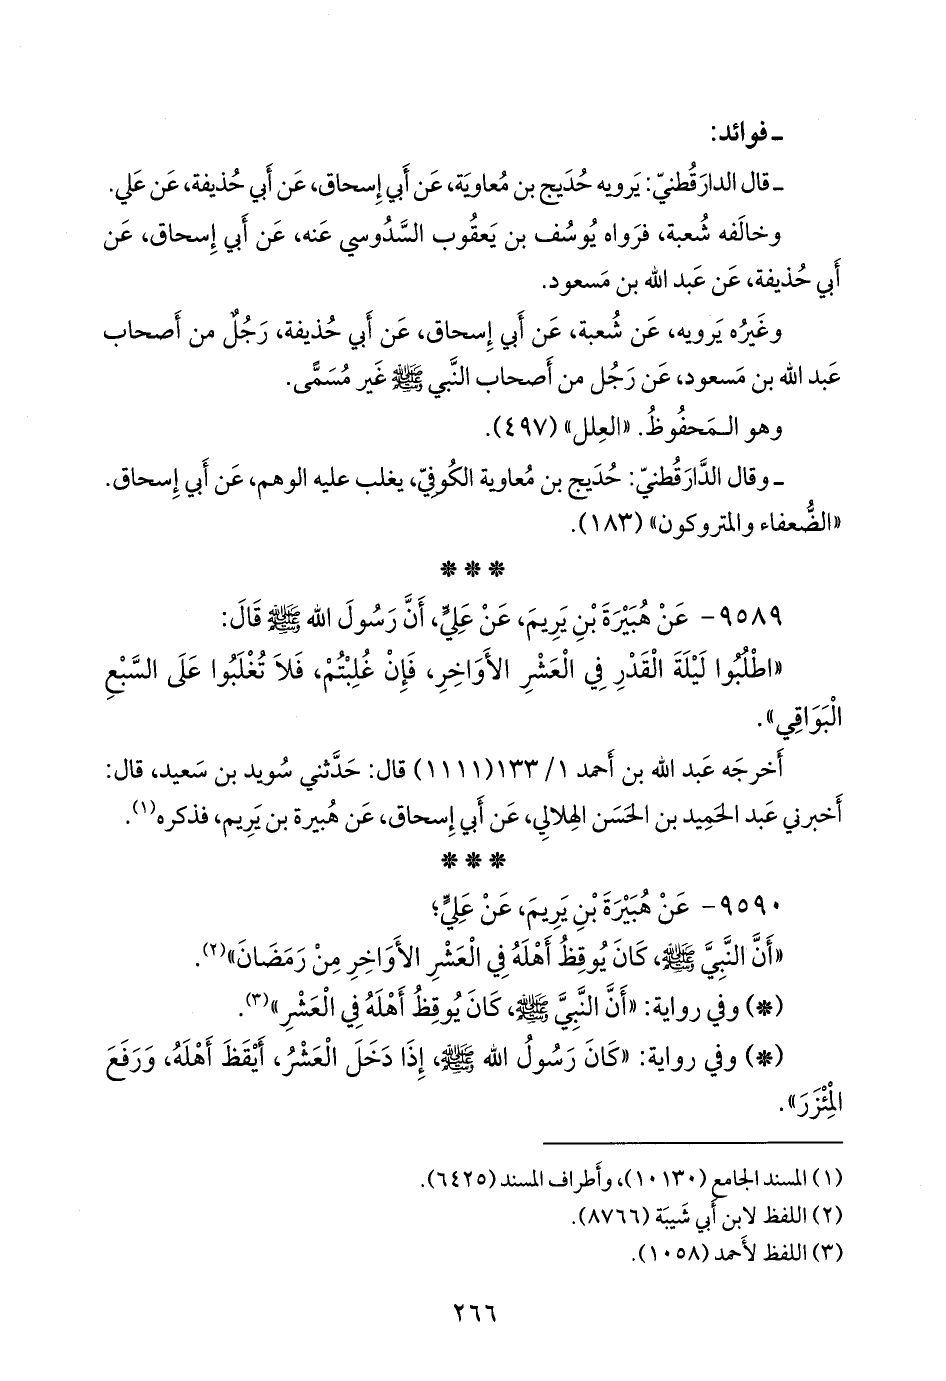 ـ فوائد:
ـ قال الدارَقُطنيّ: يَرويه حُدَيج بن مُعاويَة، عَن أَبي إِسحاق، عَن أَبي حُذيفة، عَن عَلي.
وخالَفه شُعبة، فرَواه يُوسُف بن يَعقُوب السَّدُوسي عَنه، عَن أَبي إِسحاق، عَن
أَبي حُذيفة، عَن عَبد الله بن مَسعود.
وغَيرُه يَرويه، عَن شُعبة، عَن أَبي إِسحاق، عَن أَبي حُذيفة، رَجُلٌ من أَصحاب
عَبد الله بن مَسعود، عَن رَجُل من أَصحاب النَّبي ﷺ غَير مُسَمًّى.
وهو المَحفُوظُ. «العِلل» (٤٩٧).
ـ وقال الدَّارَقُطنيّ: حُدَيج بن مُعاوية الكُوفيّ، يغلب عليه الوهم، عَن أَبي إِسحاق.
«الضُّعفاء والمتروكون» (١٨٣).
* * *
٩٥٨٩- عَنْ هُبَيْرَةَ بْنِ يَرِيمَ، عَنْ عَلِيٍّ، أَنَّ رَسُولَ الله ﷺ قَالَ:
«اطْلُبُوا لَيْلَةَ الْقَدْرِ فِي الْعَشْرِ الأَوَاخِرِ، فَإِنْ غُلِبْتُمْ، فَلاَ تُغْلَبُوا عَلَى السَّبْعِ
الْبَوَاقِي».
أَخرجَه عَبد الله بن أَحمد ١/ ١٣٣(١١١١) قال: حَدَّثني سُويد بن سَعيد، قال:
أَخبرني عَبد الحَمِيد بن الحَسَن الهِلالي، عَن أَبي إِسحاق، عَن هُبيرة بن يَرِيم، فذكره(١).
* * *
٩٥٩٠- عَنْ هُبَيْرَةَ بْنِ يَرِيمَ، عَنْ عَلِيٍّ؛
«أَنَّ النَّبِيَّ ﷺ، كَانَ يُوقِظُ أَهْلَهُ فِي الْعَشْرِ الأَوَاخِرِ مِنْ رَمَضَانَ»(٢).
(*) وفي رواية: «أَنَّ النَّبِيَّ ﷺ، كَانَ يُوقِظُ أَهْلَهُ فِي الْعَشْرِ»(٣).
(*) وفي رواية: «كَانَ رَسُولُ الله ﷺ، إِذَا دَخَلَ الْعَشْرُ، أَيْقَظَ أَهْلَهُ، وَرَفَعَ
الْمِئْزَرَ».
(١) المسند الجامع (١٠١٣٠)، وأَطراف المسند (٦٤٢٥).
(٢) اللفظ لابن أَبي شَيبَة (٨٧٦٦).
(٣) اللفظ لأَحمد (١٠٥٨).
٢٦٦